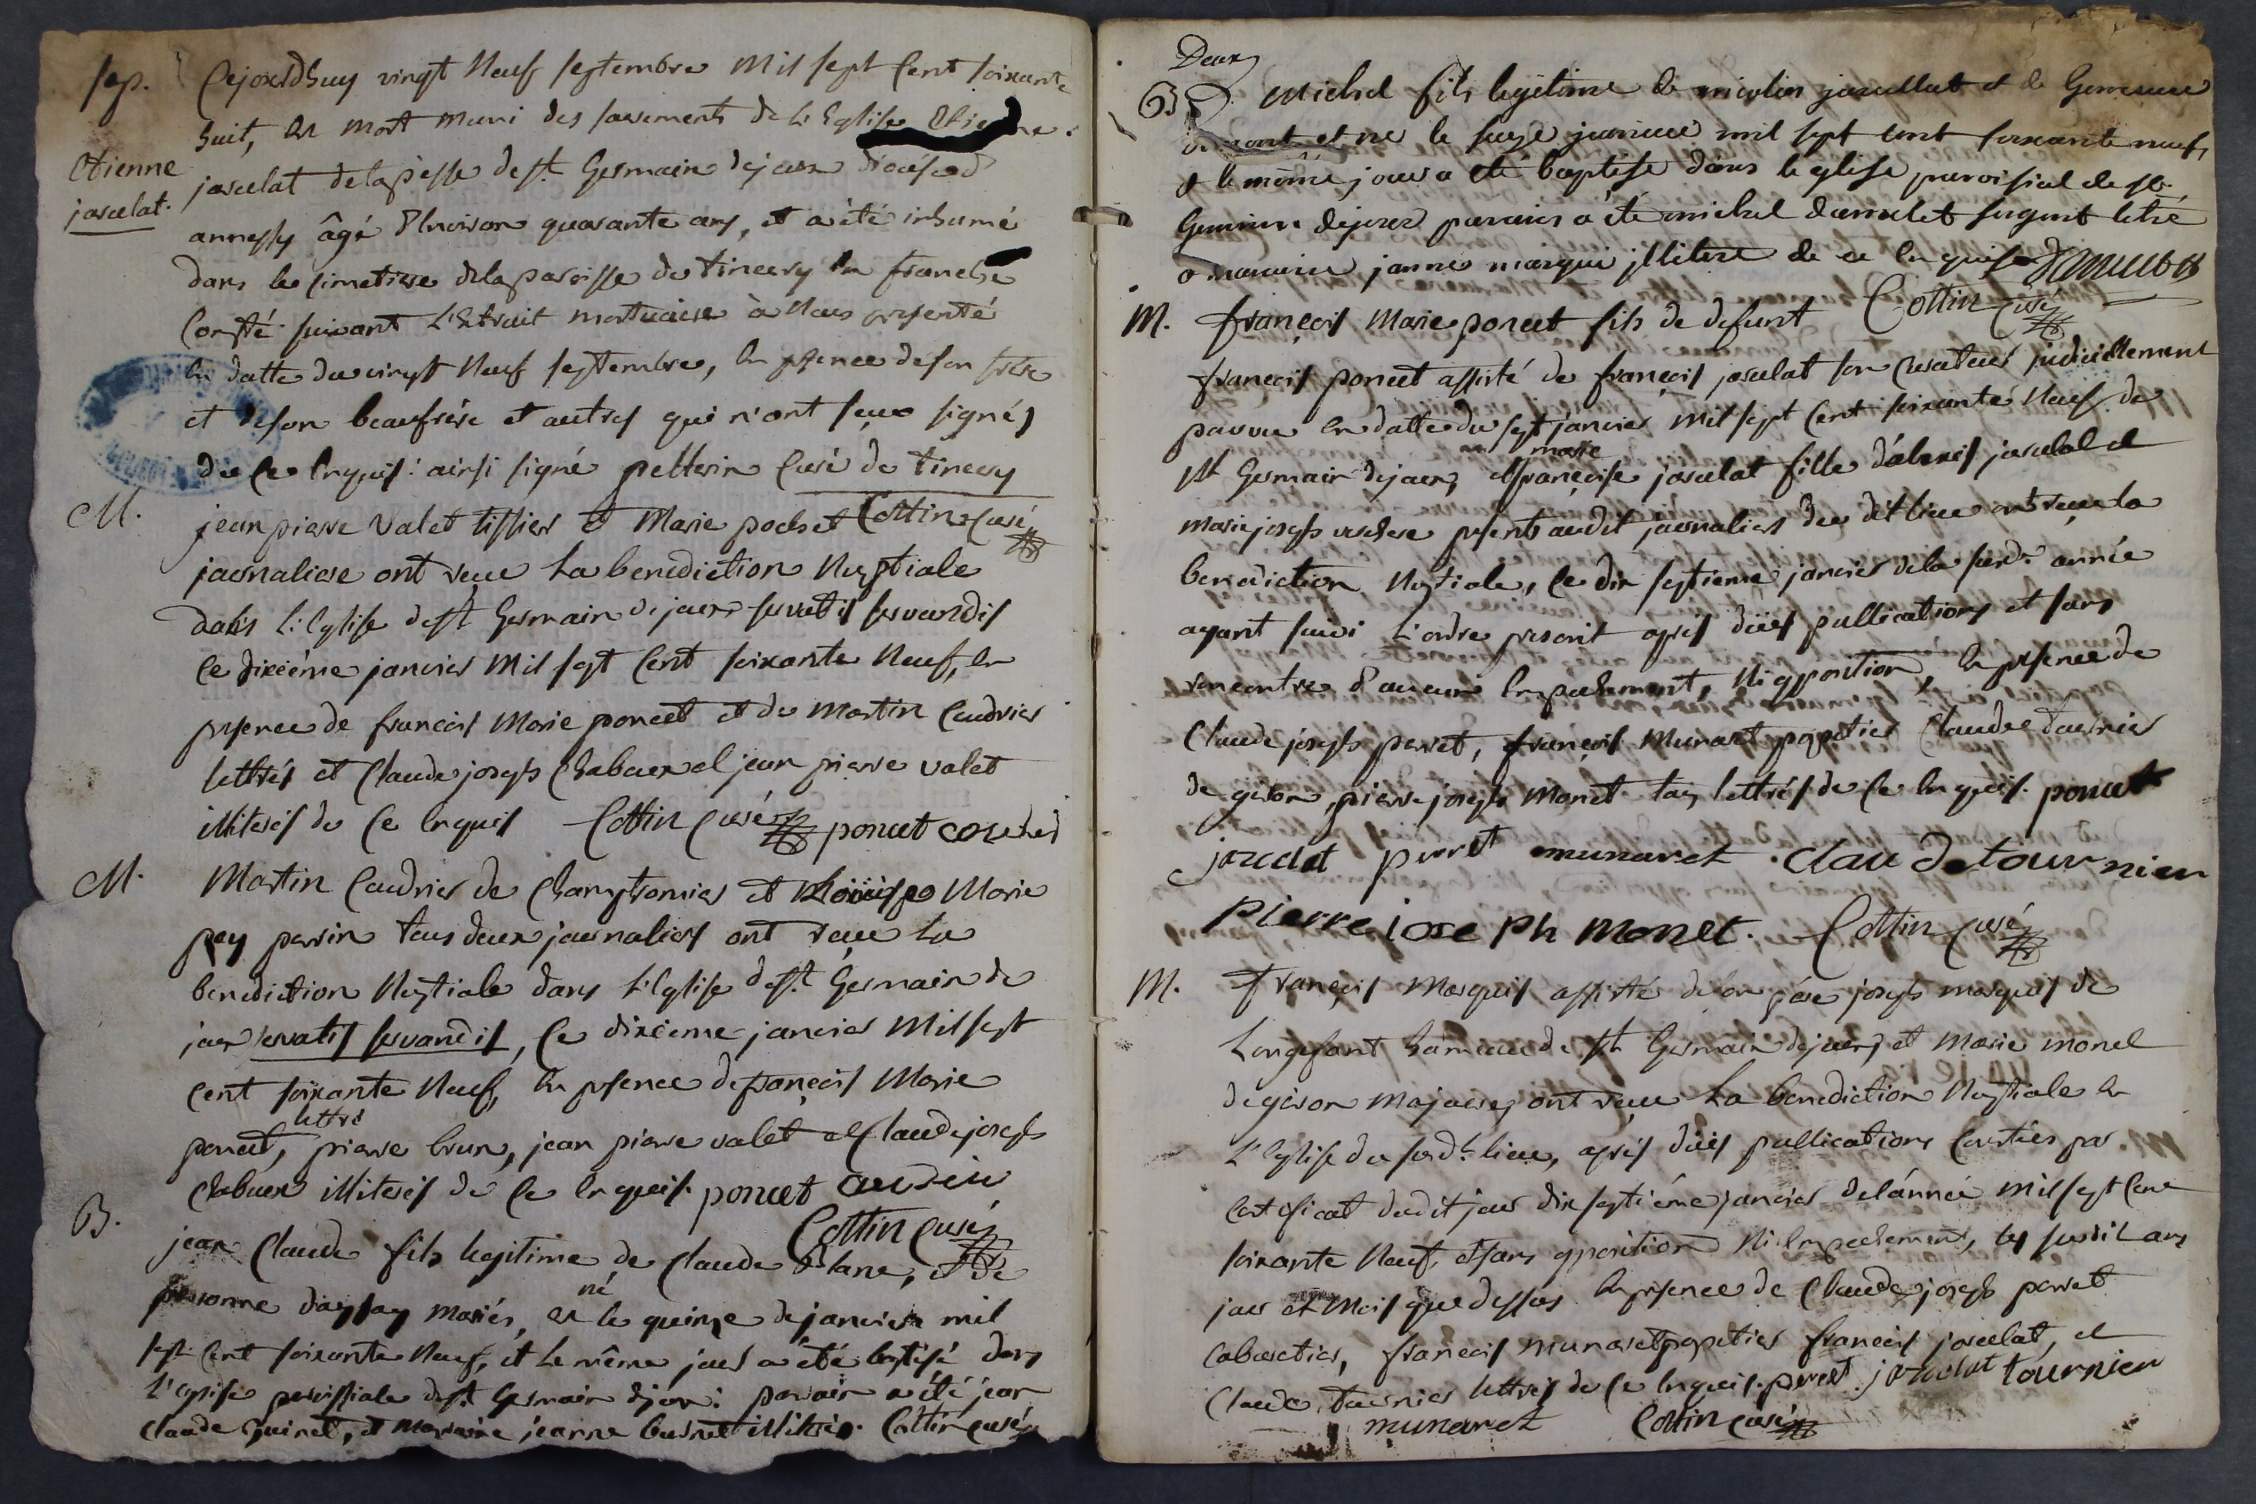 sep. Cejourdhuy vingt Neuf septembre Mil sept Cent soixante
huit, est mort muni des sacrements de L'Eglise Etienne
Etienne
josselat.
jarcelat delapsse de st Germain dejoux diocese d
annessy âgé d'Environ quarante ans, et a été inhumé
dans le simetiere delaparoisse de tincury en franche
Conté suivant L'Extrait mortuaire à Nous presenté
En datte du vingt Neuf septembre, En psence deson frère
et deson beaufrère et autres qui n'ont seus signés
de ce Enquis: ainsi signé pellerin Curé de tincury
Cottin Curé
M. jean pierre Valet tissier et Marie pochet
journaliere ont reçue La benediction Nuptiale
dans L'Eglise de st Germain de joux servatis servandis
ce dixième janvier Mil sept Cent soixante Neuf, En
psence de francois Marie poncet et de Martin Caudrier
lettrés et Claude joseph Chabaux et jean pierre valet
illiterés de Ce Enquis Cottin Curé poncet
M. Martin Caudrier de Champfromier et Marie
pey perrin tous deux journaliers ont reçue La
benediction Nuptiale dans L'Eglise de st Germain de
joux servatis servandis, Ce dixieme janvier Mil sept
Cent soixante Neuf, En psence de françois Marie
poncet, lettré pierre brun, jean pierre valet et Claude joseph
Chabaux illiterés de Ce Enquis. poncet
Cottin Curé
B. jean Claude fils legitime de Claude Blanc, et de
mariés, est né le quinze de janvier mil
sept Cent soixante Neuf, et Le même jour a été baptisé dans
L'Eglise paroissiale de st Germain djoux: parrain a été jean
Claude et marraine jeanne illiterés. Cottin Curé
Deux
B Michel fils legitime de nicolas jarcellat et de Germaine
et ne le janvier mil sept cent soixante neuf,
& le même jour a été baptisé dans leglise paroisial de st
Germain dejoux parrain a été michel lettré
& maraine janne marqui jlliteré de ce Enquis
Cottin Curé
M. françois Marie poncet fils de defunt
françois poncet assisté de françois joscelat son Curateur judiciellement
pourvu En datte du sept janvier Mil sept Cent soixante Neuf de
st Germain dejoux, et marie françoise joscelat fille d'alexis joscelat et
marie joseph psents audit journaliers du dit lieu ont reçue la
benediction Nuptiale, Ce dix septieme janvier dela susd.e année
ayant suivi L'ordre prescrit après duës pullications et sans
rencontre d'aucun Enpechement, Ni opposition, En psence de
Claude joseph perret, françois Munaret Claude tournier
de giron, pierre joseph Monet tous lettrés de Ce Enquis. poncet
perret munaret. Claude tournier
Pierre iose Ph monet. Cottin Curé
M. françois Marquis assisté de son père joseph marquis de
Longefant hameau de st Germain dejoux, et Marie monet
de giron Majeurs, ont reçue La benediction Nuptiale En
L'Eglise du susd.t lieu, après duës pullications Constées par
Certificat dudit jour dix septiéme janvier de l'année Mil sept Cent
soixante Neuf, et sans opposition Ni Enpechement, les susdit ans
jour et Mois que dessus En psence de Claude joseph perret
Cabaretier, francois munaret francois joscelat, et
Claude tournier lettrés de Ce Enquis. perret. tournier
munaret Cottin Curé